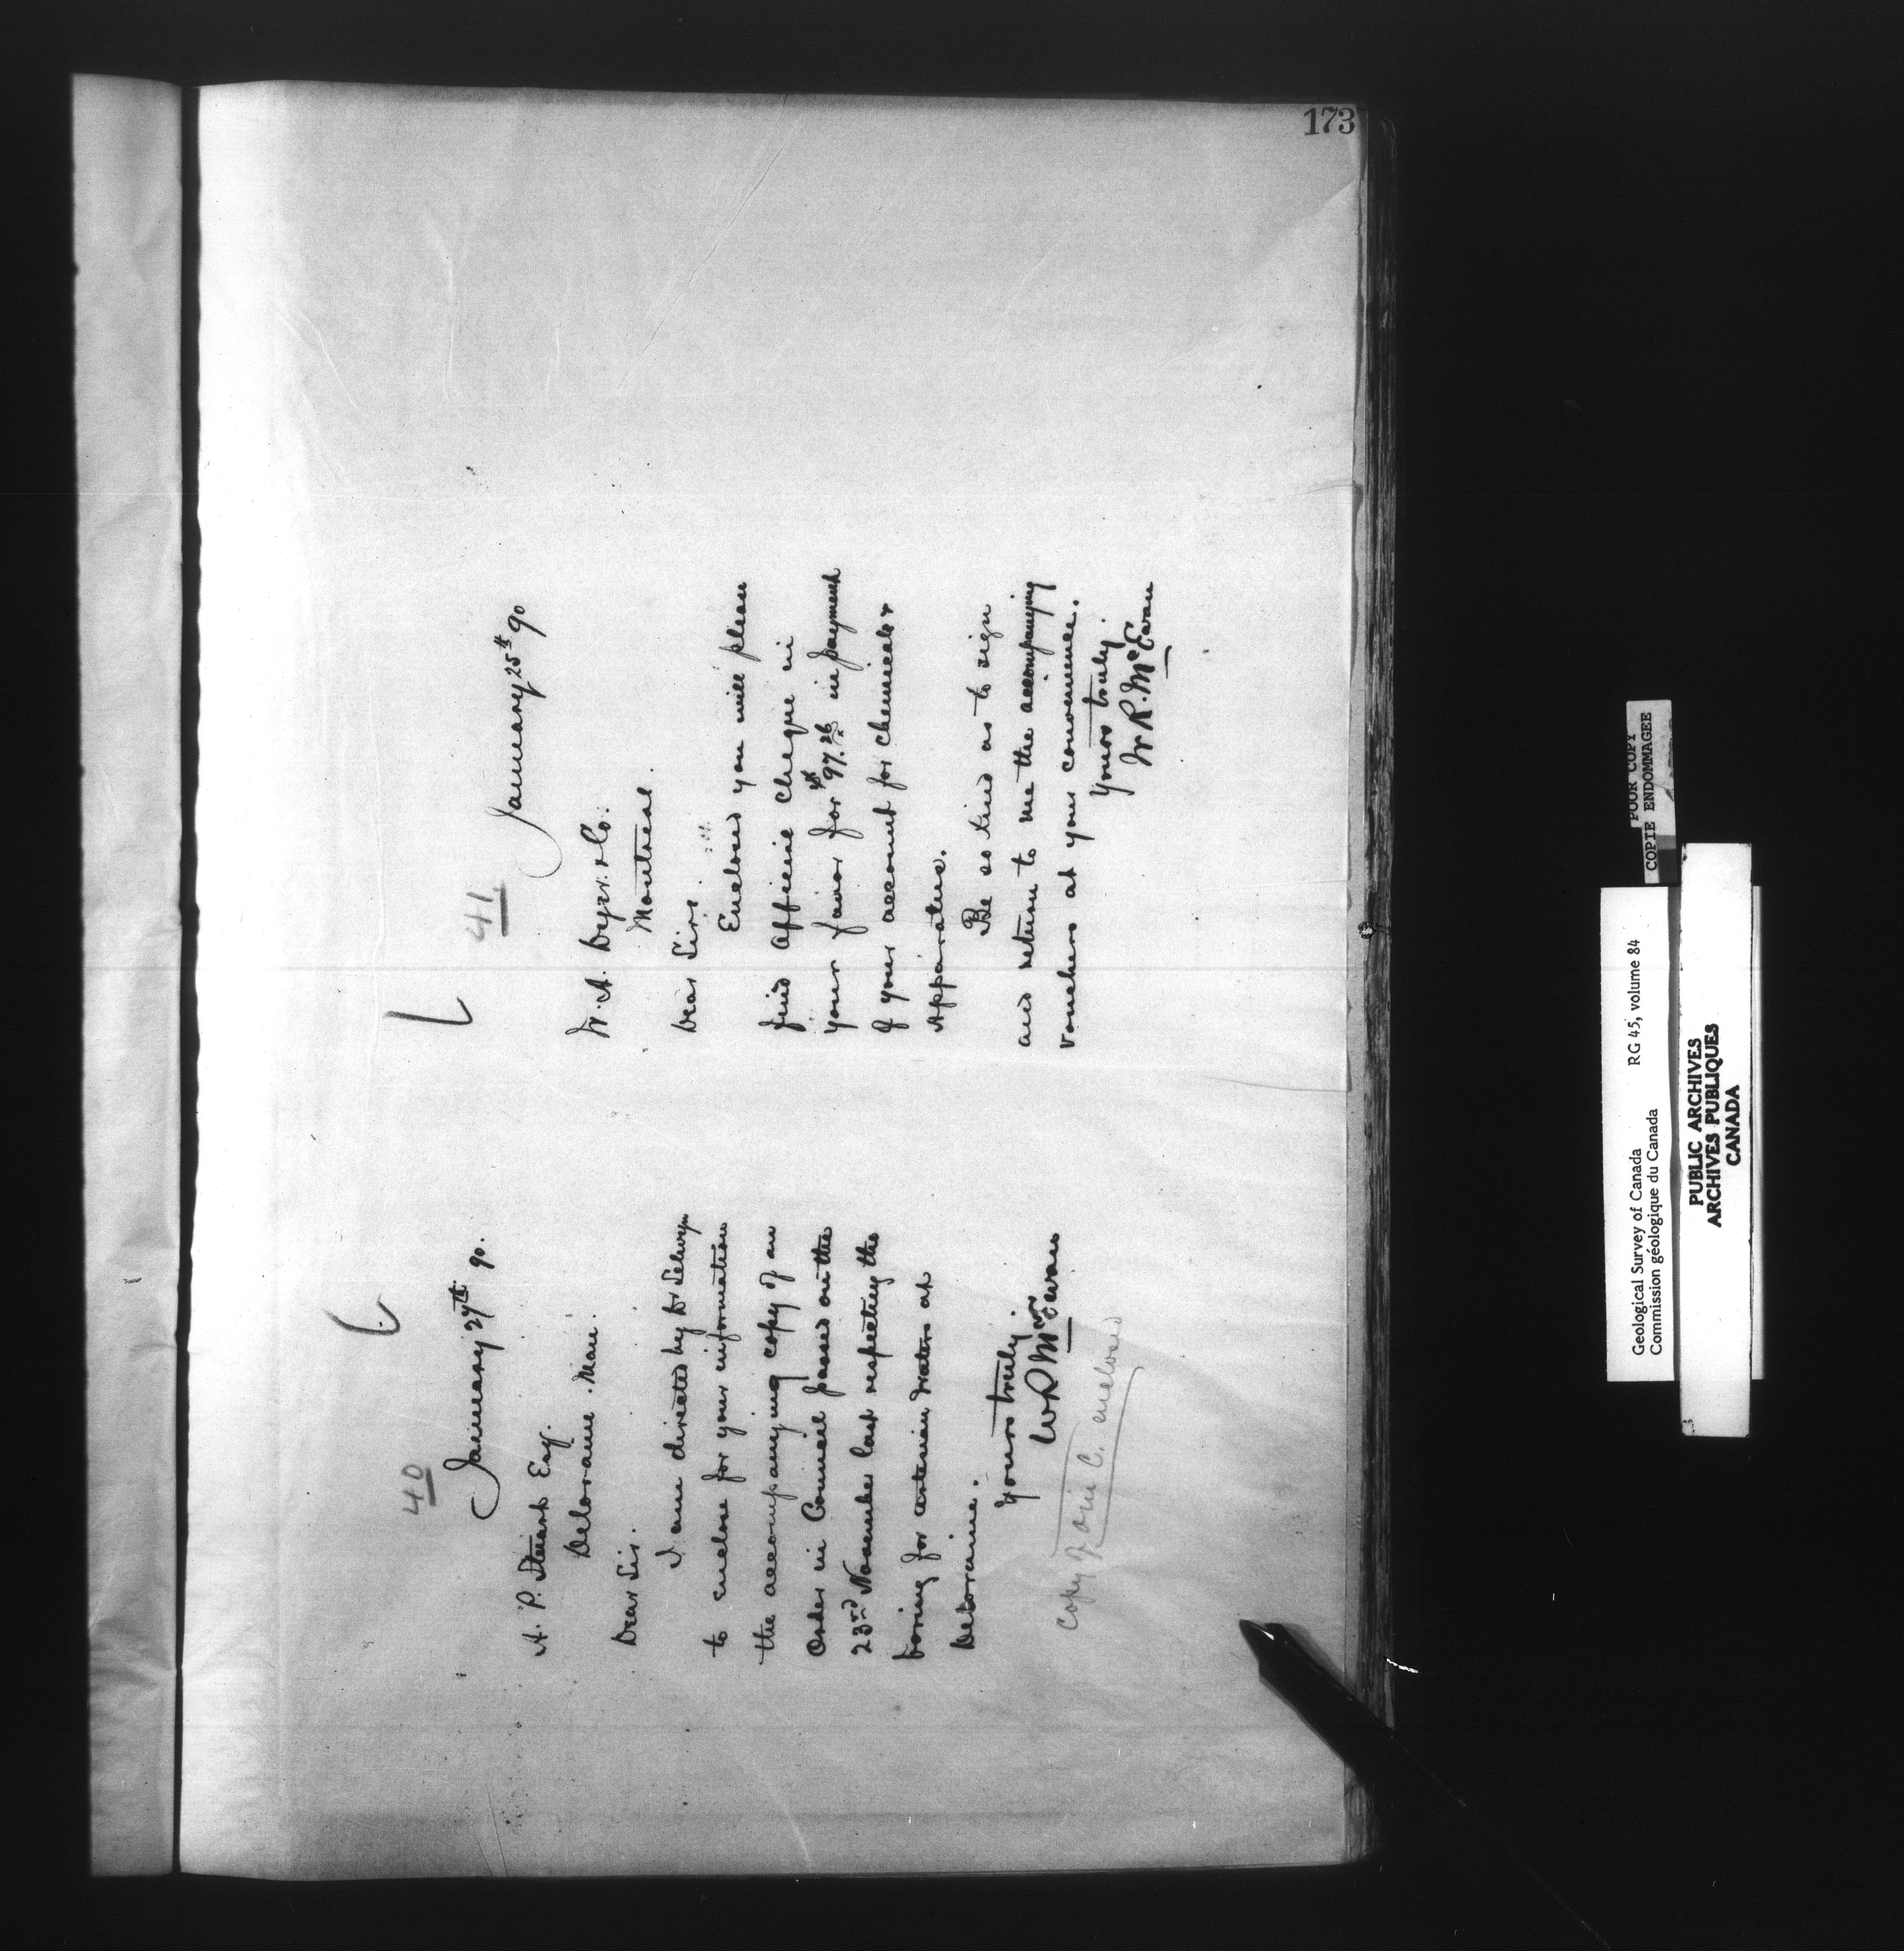 173
40
January 27th 90.
A. P. Stewart Esq.
Deloraine. Man.
Dear Sir.
I am directed by Dr Selwyn
to enclose for your information
the accompanying copy of an
Order in Council passed on the
23rd November last respecting the
boring for artesian waters at
Deloraine.
Yours truly.
W R McEwan
copy of O in C. enclosed
41
January 25th 90
W. A. Dyer & Co.
Montreal.
Dear Sirs.
Enclosed you will please
find official cheque in
your favor for $97.26 in payment
of your account for chemicals &
Apparatus.
Be so kind as to sign
and return to me the accompanying
vouchers at your convenience.
Yours truly.
W R. McEwan
POOR COPY
COPIE ENDOMMAGEE
Geological Survey of Canada RG 45, volume 84
Commission géologique du Canada
PUBLIC ARCHIVES
ARCHIVES PUBLIQUES
CANADA